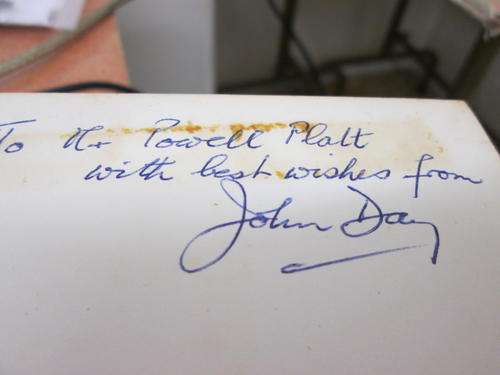 To Mr Powell Platt
with best wishes from
John Day